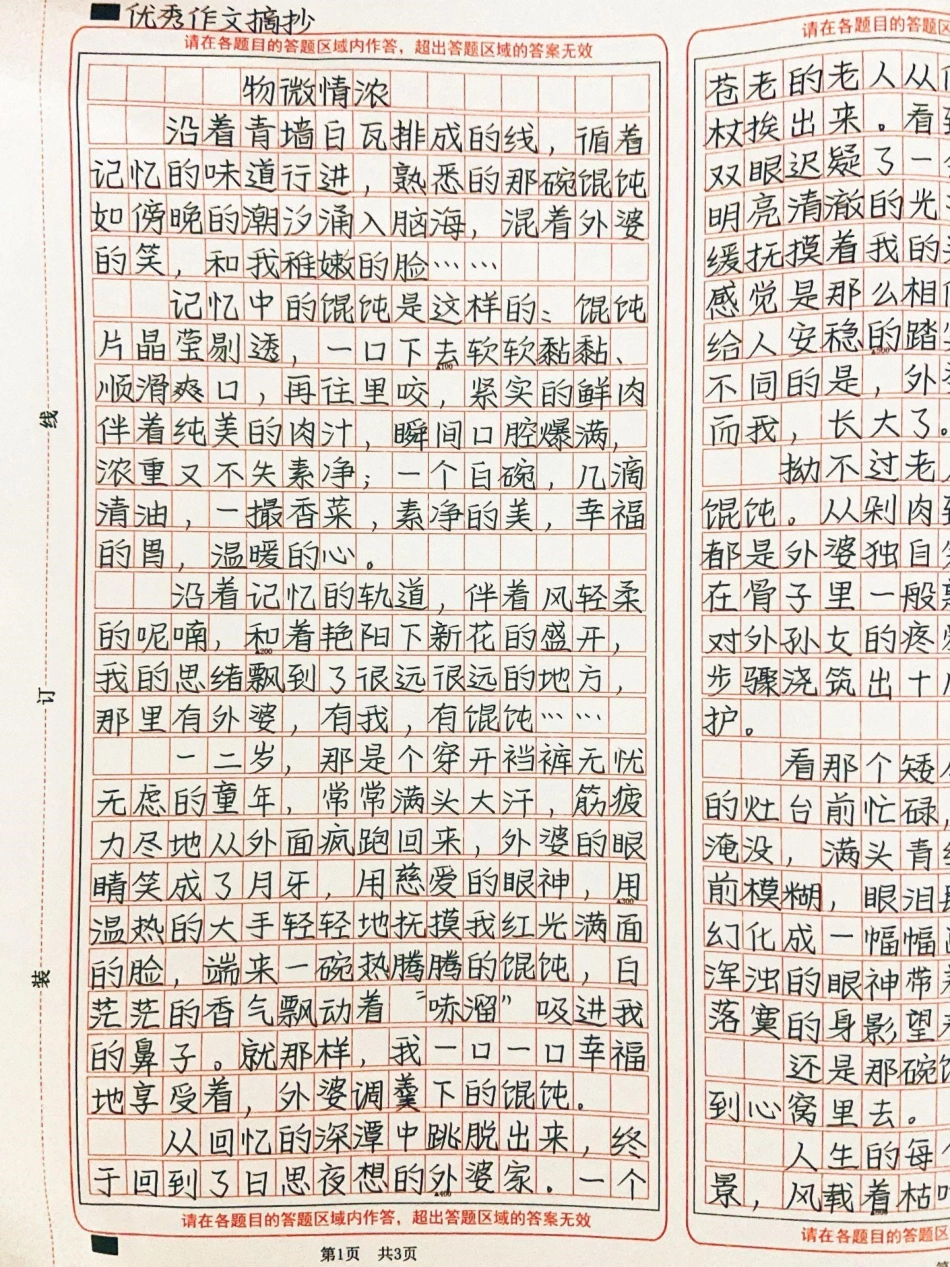 优秀作文摘抄
请在各题目的答题区域内作答，超出答题区域的答案无效
物微情浓
沿着青墙白瓦排成的线，循着
记忆的味道行进，熟悉的那碗馄饨
如傍晚的潮汐涌入脑海，混着外婆
的笑，和我稚嫩的脸……
记忆中的馄饨是这样的：馄饨
片晶莹剔透，一口下去软软黏黏、
顺滑爽口，再往里咬，紧实的鲜肉
伴着纯美的肉汁，瞬间口腔爆满，
浓重又不失素净；一个白碗，几滴
清油，一撮香菜，素净的美，幸福
的胃，温暖的心。
沿着记忆的轨道，伴着风轻柔
的呢喃，和着艳阳下新花的盛开，
我的思绪飘到了很远很远的地方，
那里有外婆，有我，有馄饨……
一二岁，那是个穿开裆裤无忧
无虑的童年，常常满头大汗，筋疲
力尽地从外面疯跑回来，外婆的眼
睛笑成了月牙，用慈爱的眼神，用
温热的大手轻轻地抚摸我红光满面
的脸，端来一碗热腾腾的馄饨，白
茫茫的香气飘动着“哧溜”吸进我
的鼻子。就那样，我一口一口幸福
地享受着，外婆调羹下的馄饨。
从回忆的深潭中跳脱出来，终
于回到了日思夜想的外婆家。一个
请在各题目的答题区域内作答，超出答题区域的答案无效
第1页 共3页
请在各题目的答题区
苍老的老人从
杖挨出来。看
双眼迟疑了一
明亮清澈的光
缓抚摸着我的
感觉是那么相
给人安稳的踏
不同的是，外
而我，长大了。
拗不过老
馄饨。从剁肉
都是外婆独自
在骨子里一般
对外孙女的疼
步骤浇筑出十
护。
看那个矮
的灶台前忙碌，
淹没，满头青
前模糊，眼泪
幻化成一幅幅
浑浊的眼神带
落寞的身影望
还是那碗
到心窝里去。
人生的每
景，风载着枯
请在各题目的答题区
线
订
装